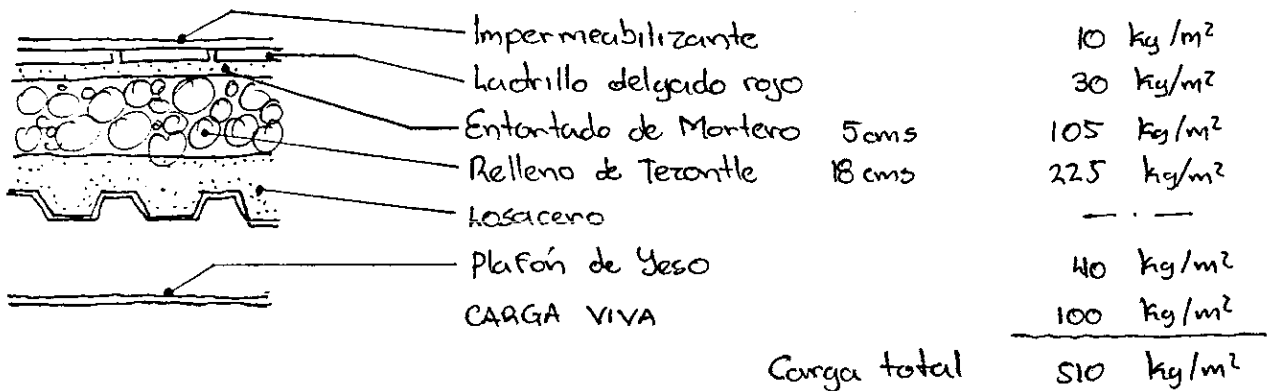 Impermeabilizante 10 kg/m²
Ladrillo delgado rojo 30 kg/m²
Entortado de Mortero 5cms 105 kg/m²
Relleno de Tezontle 18 cms 225 kg/m²
Losacero — . —
Plafón de Yeso 40 kg/m²
CARGA VIVA 100 kg/m²
Carga total 510 kg/m²